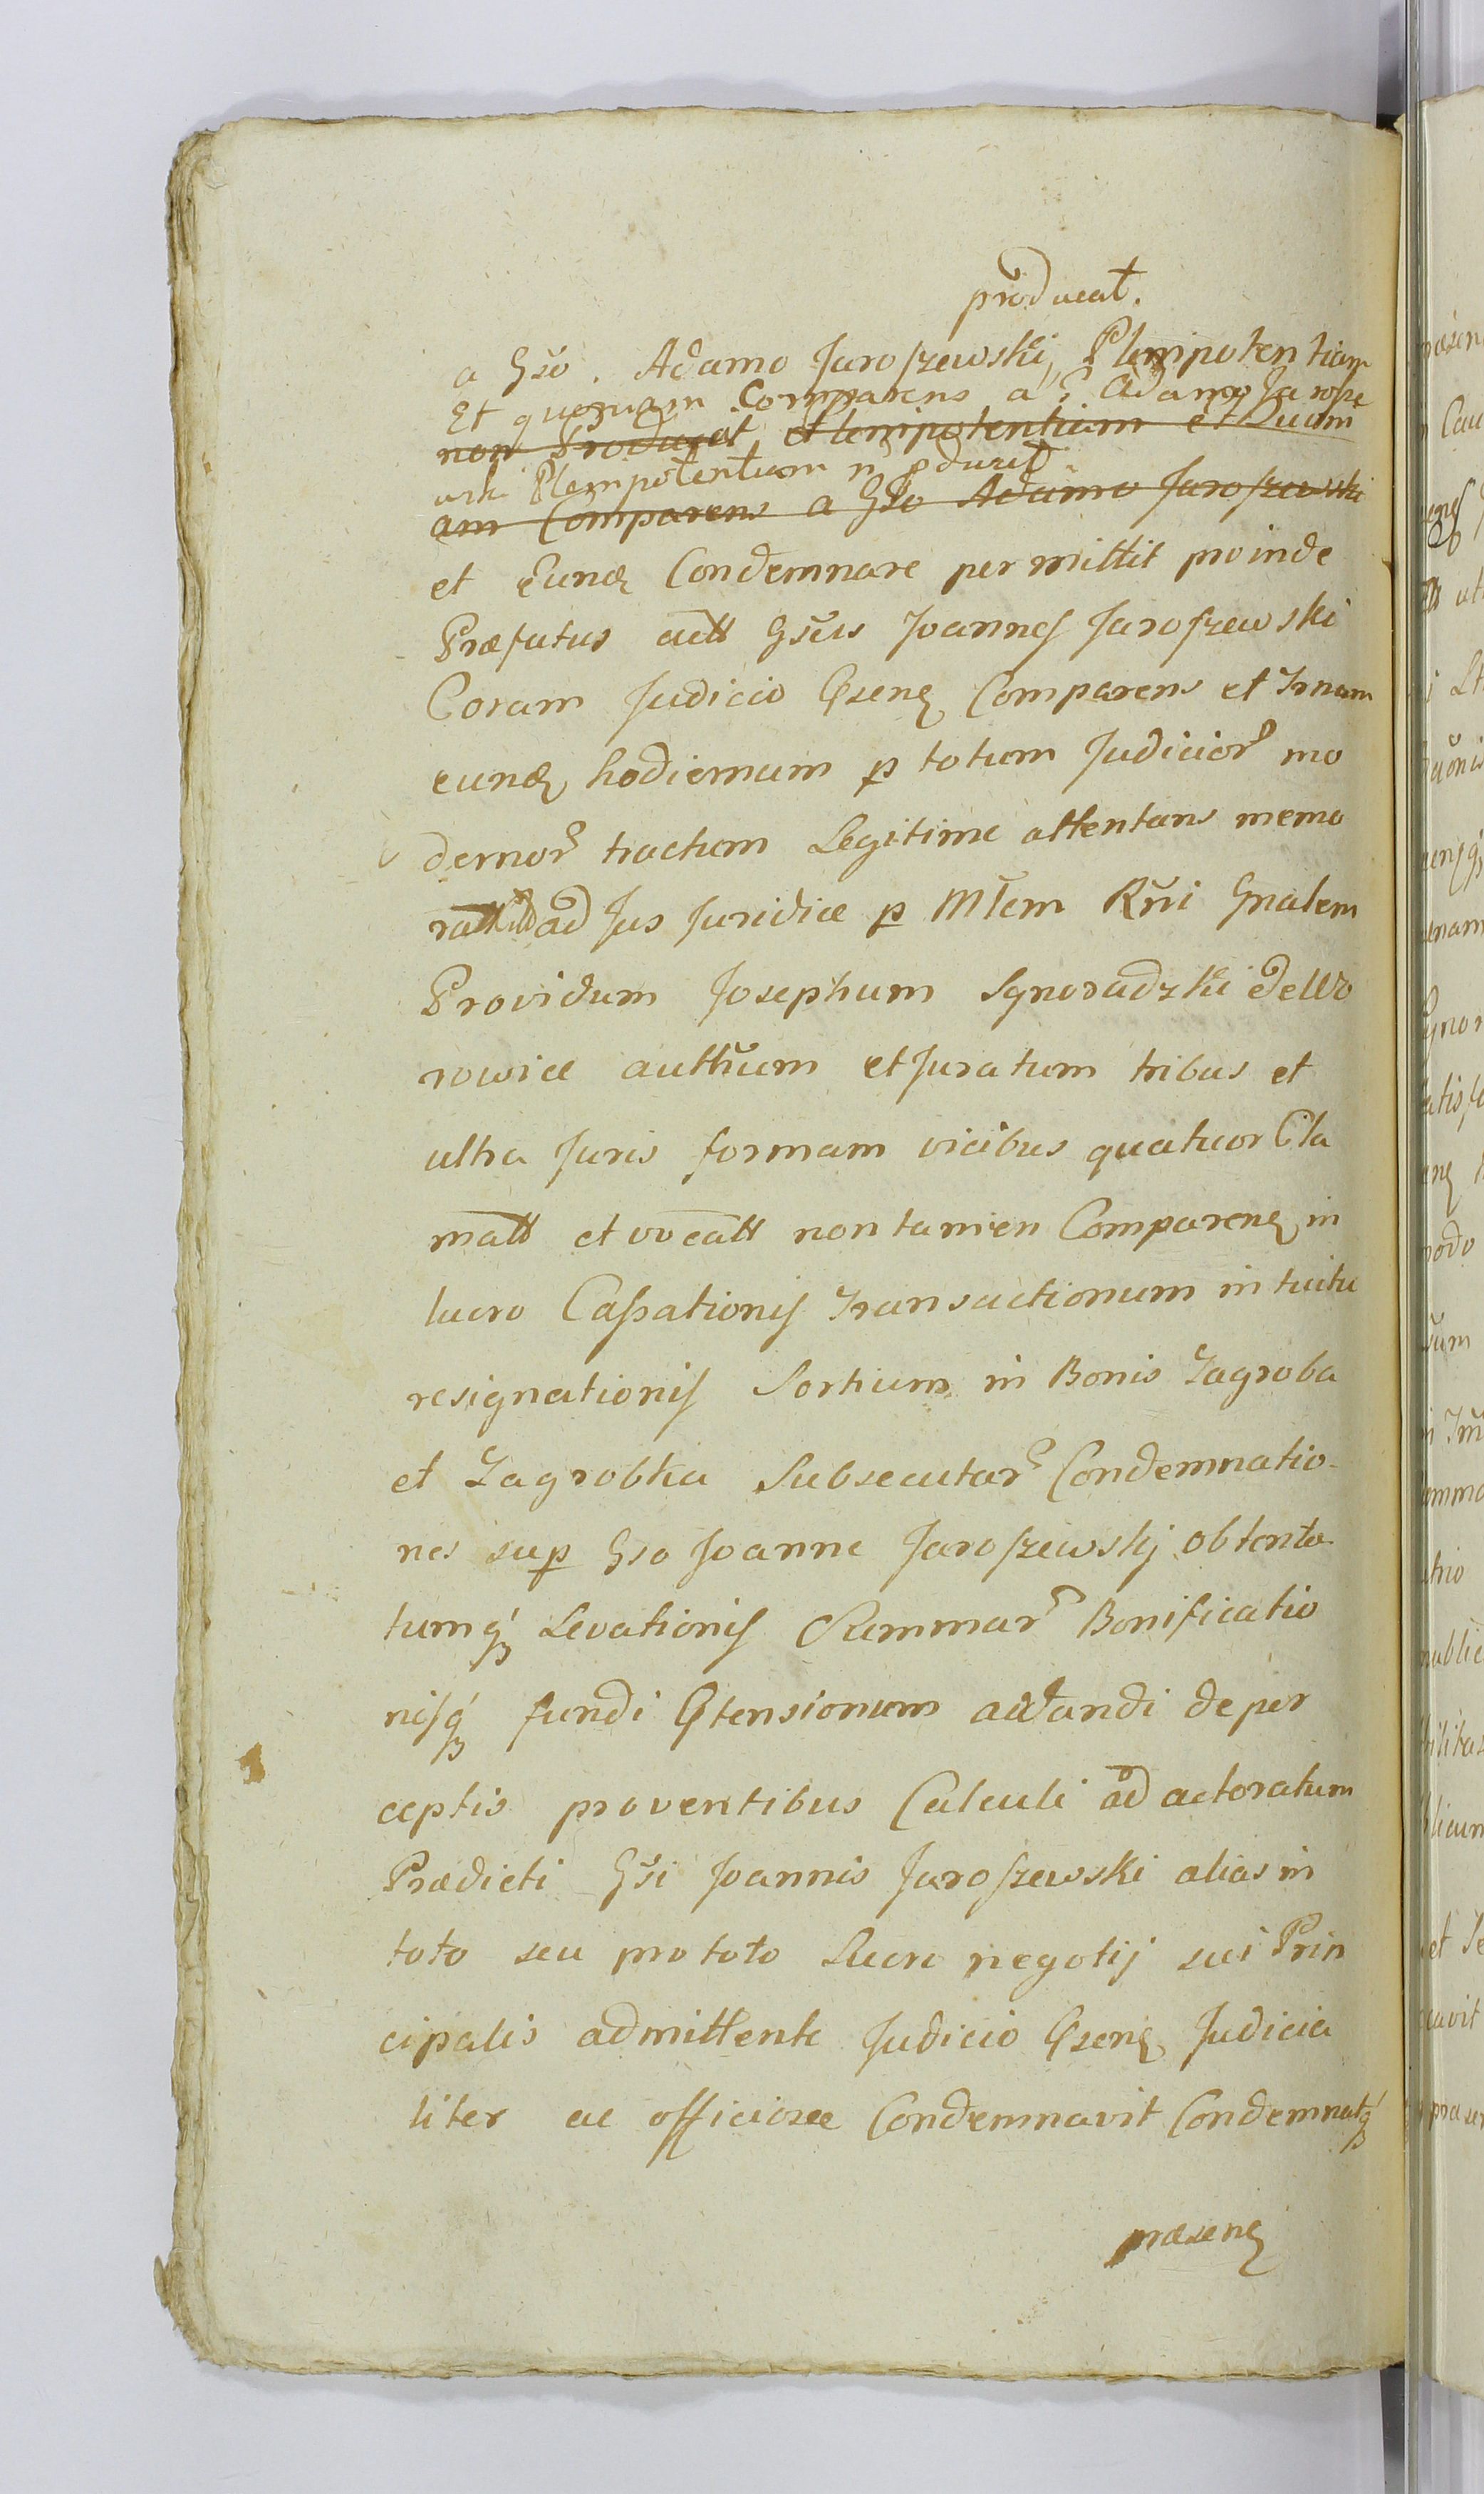 producat.
a Gso. Adamo Jaroszewski, Plenipotentiam
Et quoniam Comparens a G. Adamo Jarosze
non Producat, Plenipotentiam et Quoni
wski Plenipotentiam n pduxit
am Comparens a Gso Adamo Jaroszewski
et eund Condemnare permittit proinde
Præfatus actt Gsus Joannes Jaroszewski
Coram Judicio Psenq Comparens et Trnum
eund hodiernum p totum Judicior mo
dernor tractum Legitime attentans memo
ratt ad Jus Juridice p Mtem Rni Gnalem
Providum Josephum Synoradzki de Wo
rowice authum et Juratum tribus et
ultra Juris formam vicibus quatuor Cla
matt et vocatt non tamen Comparenq in
lucro Cassationis Transactionum intuitu
resignationis Sortium in Bonis Zagroba
et Zagrobka Subsecutar Condemnatio-
nes sup Gso Joanne Jaroszewskj obtenta
tumq Levationis Summar Bonificatio
nisq fundi Ptensionum addandi de per
ceptis proventibus Calculi ad actoratum
Prædicti Gsi Joannis Jaroszewski alias in
toto seu pro toto Lucro negotij sui Prin
cipalis admittente Judicio Psenq Judicia
liter ac officiose Condemnavit Condemnatq
præsenq